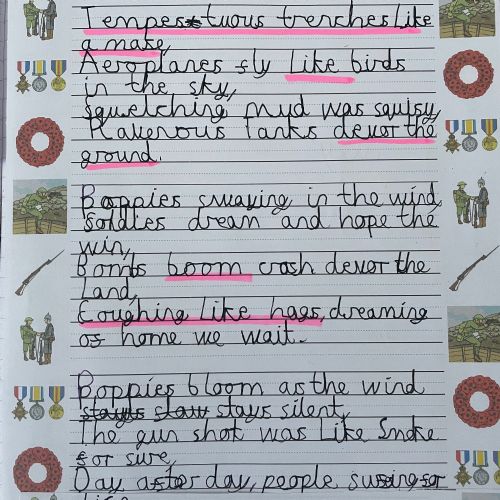 Tempestuous trenches like
a maze,
Aeroplanes fly like birds
in the sky,
Squelching mud was squisy,
Ravenous Tanks devor the
ground.
Poppies swaying in the wind,
Soldies dream and hope the
win,
Bombs boom crash devor the
Land,
Coughing like hags, dreaming
of home we wait.
Poppies bloom as the wind
stays silent,
The gun shot was Like Smoke
for sure,
Day after day, people for